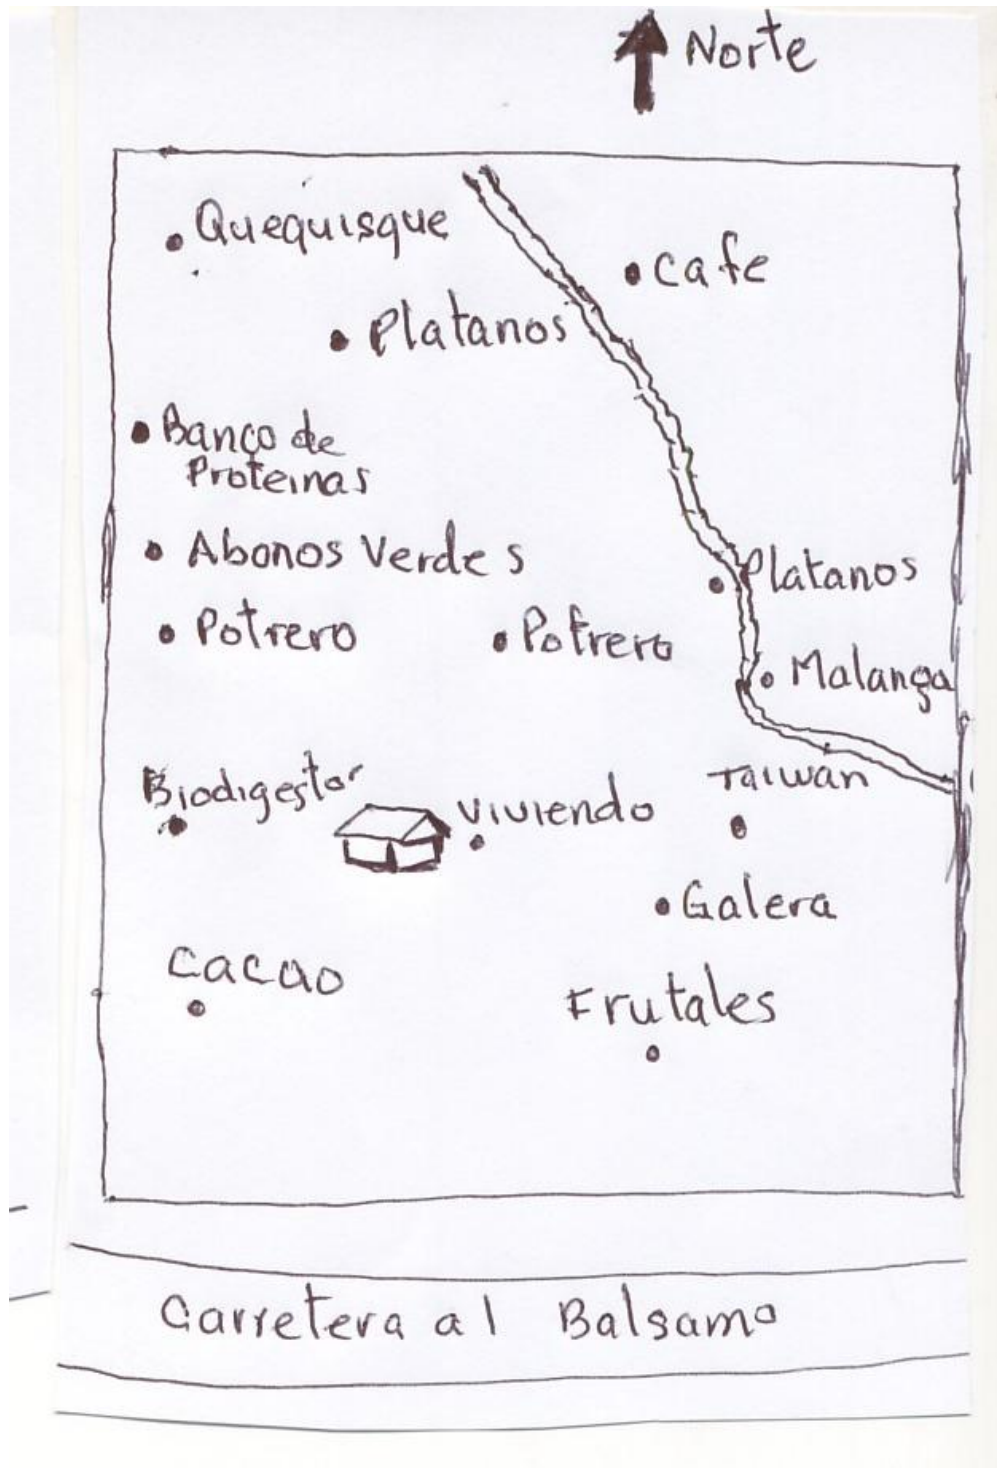 Norte
Quequisque
Cafe
Platanos
Banco de
Proteinas
Abonos Verdes
Platanos
Potrero
Potrero
Malanga
Biodigestor
Viviendo
Taiwan
Galera
Cacao
Frutales
Carretera al Balsamo